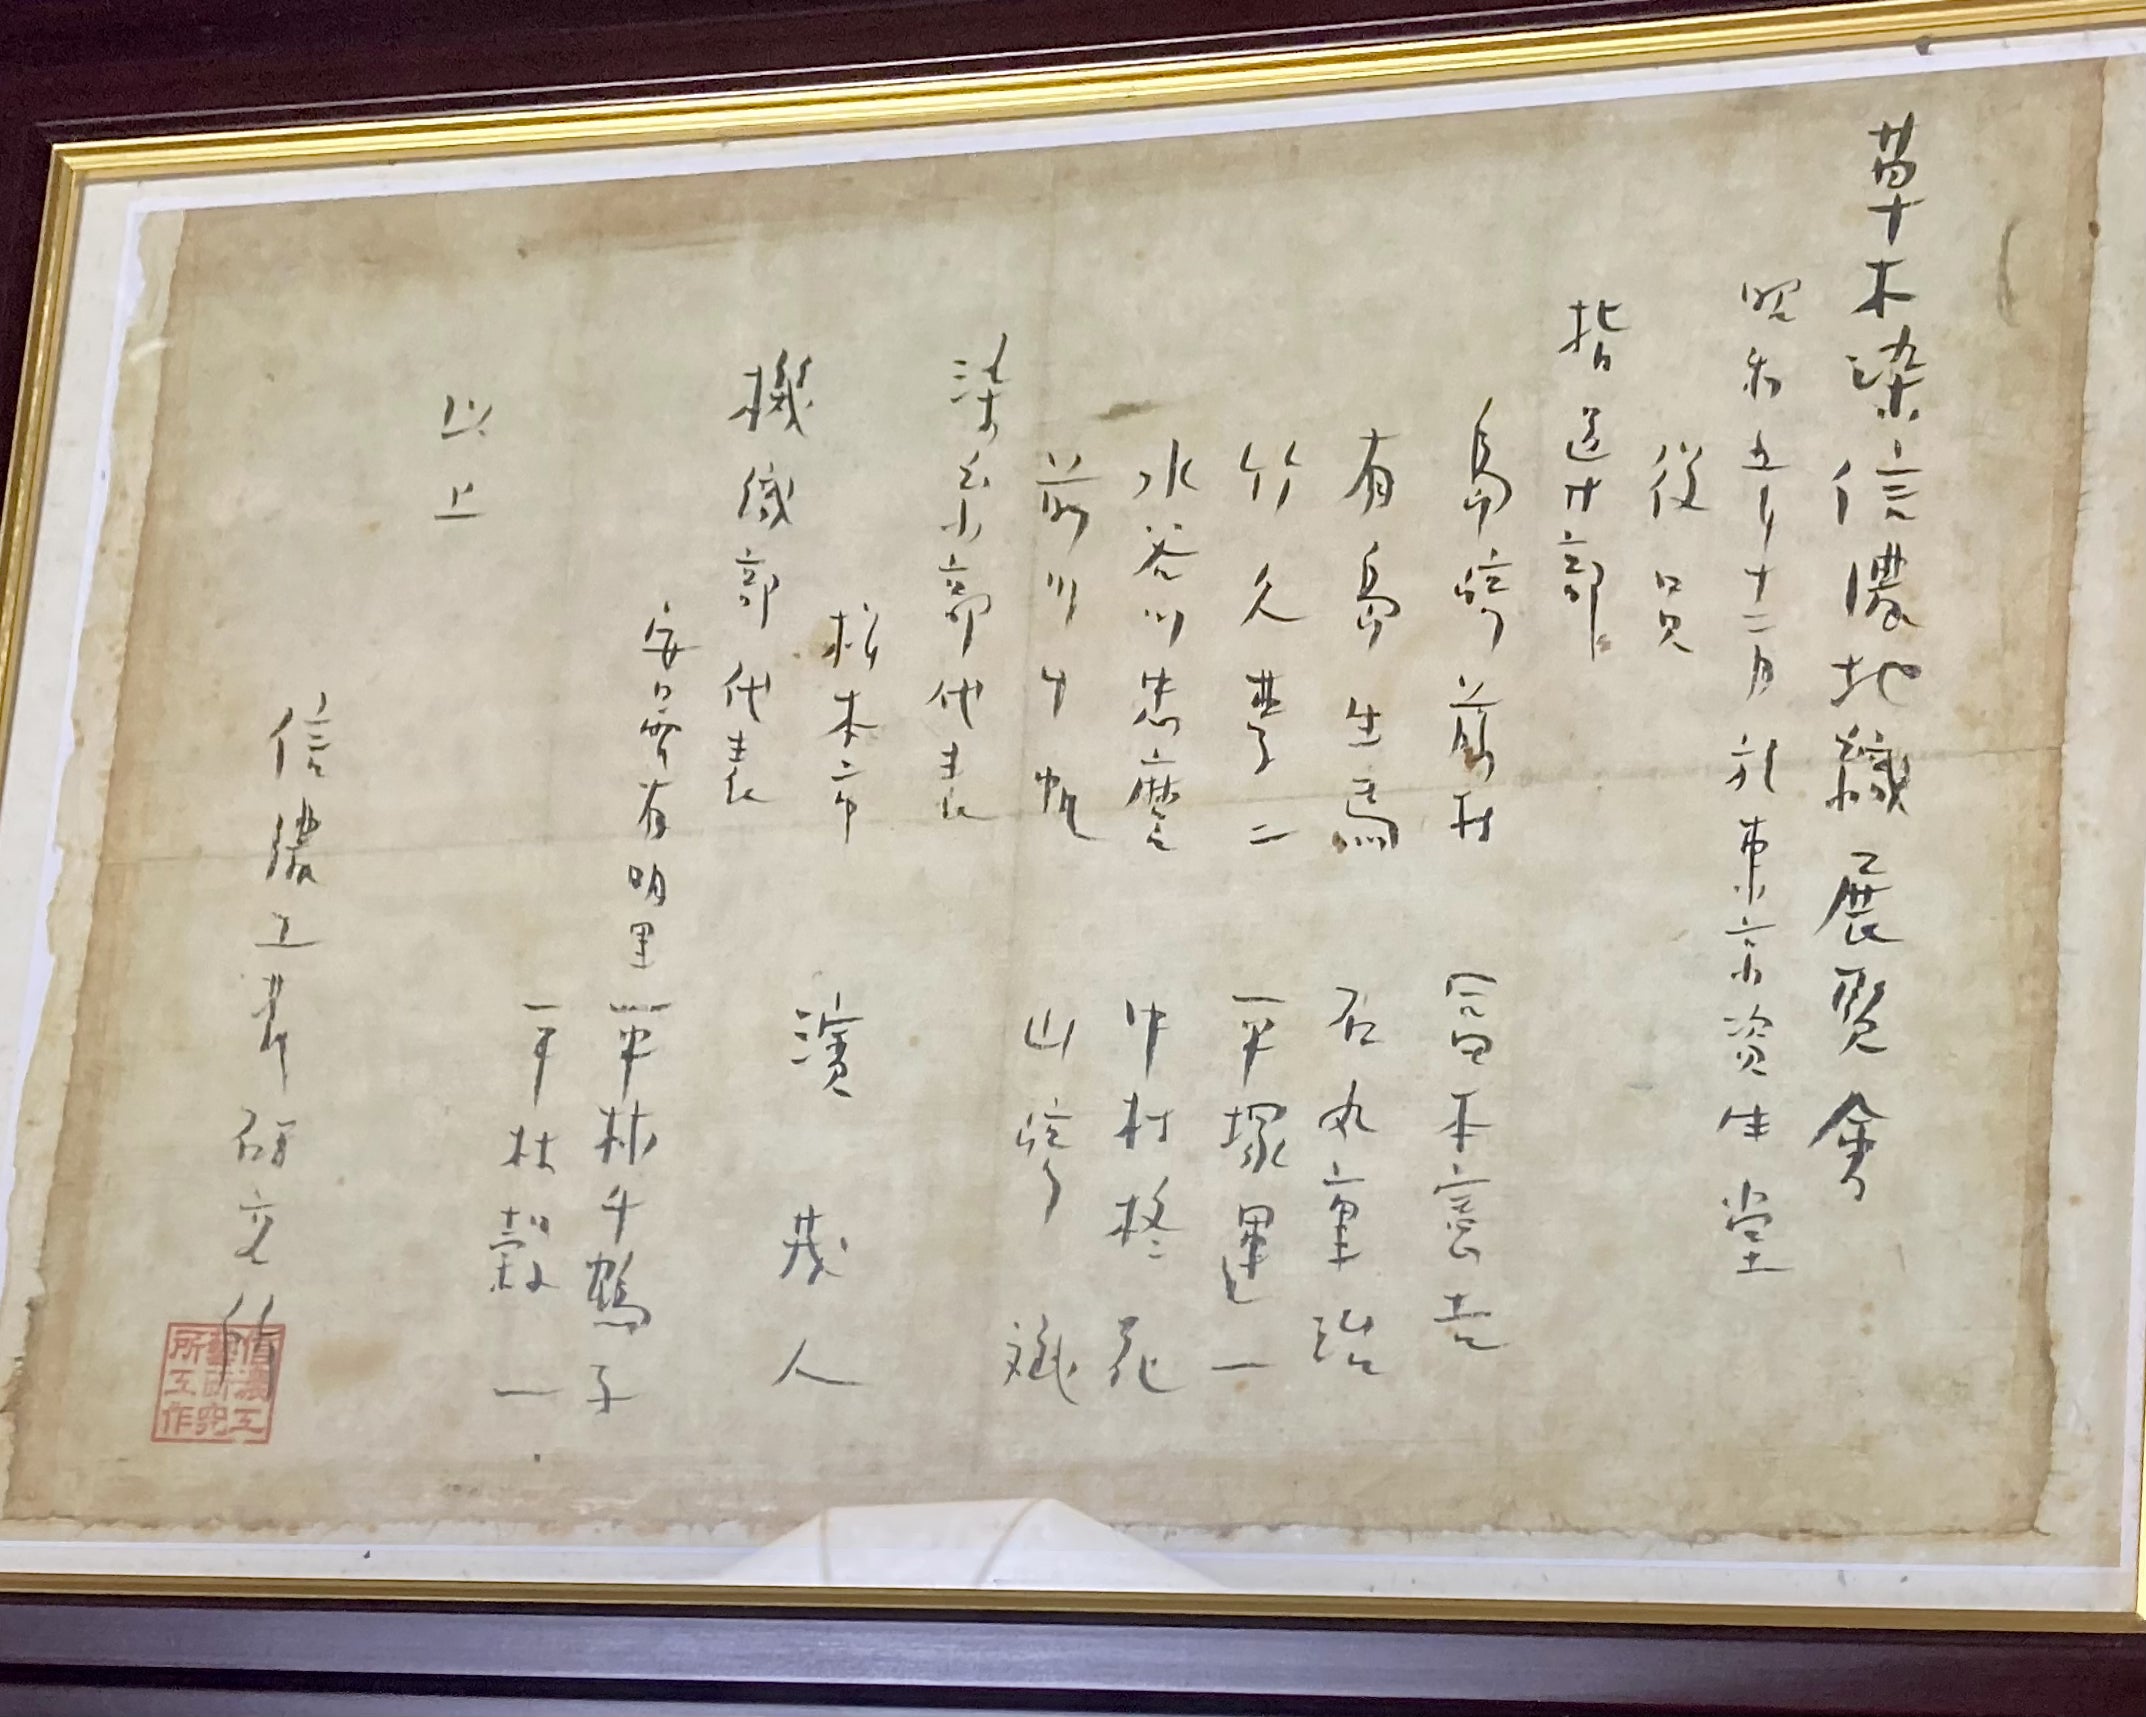 草木染信濃地織展覧會
昭和五年十二月於東京資生堂
役員
指導部
島崎藤村 富本憲吉
有島生馬 石丸重治
竹久夢二 平塚運一
水谷川忠麿 中村柊花
前川千帆 山崎斌
染糸部代表
松本市 濱茂人
機織部代表
安曇有明里 平林千鶴子
平林毅一
以上
信濃工芸研究所
信濃工
藝研究
所工作